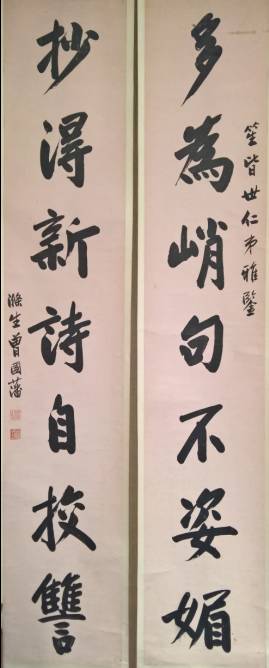 多為峭句不姿媚
笙皆世仁弟雅鑒
抄得新詩自挍讐
滌生曾國藩